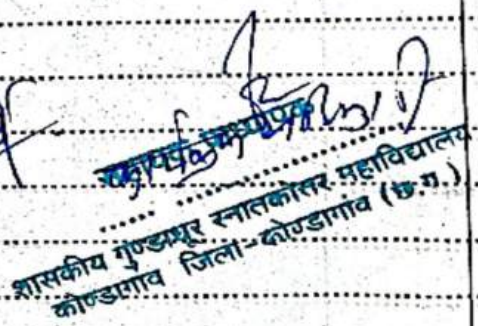 सहायक प्राध्यापक
शासकीय गुण्डाधूर स्नातकोत्तर महाविद्यालय
कोण्डागांव जिला-कोण्डागांव (छ.ग.)